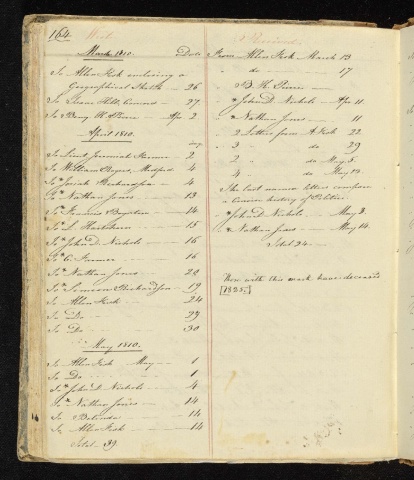 164
March 1810. Date
To Allen Fisk enclosing a
Geographical Sketch - 26
To Isaac Hill, Concord - 27
To Benj. H. Pierce - Apr 2
April 1810.
To Lieut Jeremiah 2
To William Rogers, Medford 4
To * Josiah Richardson - 4
To * Nathan Jones - 13
To * Francis Boynton - 14
To * L. 15
To * John D. Nichols - 16
To * C. Farmer - 16
To * Nathan Jones - 20
To * Samson Richardson - 19
To Allen Fisk - 24
To Do - 27
To Do - 30
May 1810.
To Allen Fisk May - 1
To Do - 1
To * John D. Nichols - 4
To * Nathan Jones - 14
To Belinda - 14
To Allen Fisk - 14
Total 39.
Received.
From Allen Fisk March 13
" do 17
" B. H. Pierce
" * John D. Nichols - Apr 11.
" * Nathan Jones - 11
" 2 Letters from A. Fisk 22
" 3 do 29
" 2 do May 5.
" 4 do May 14.
The last named letters compose
a Concise history of Politics
* John D. Nichols - May 3.
* Nathan Jones - May 14.
Total 24
Those with this mark have deceased
[1825.]